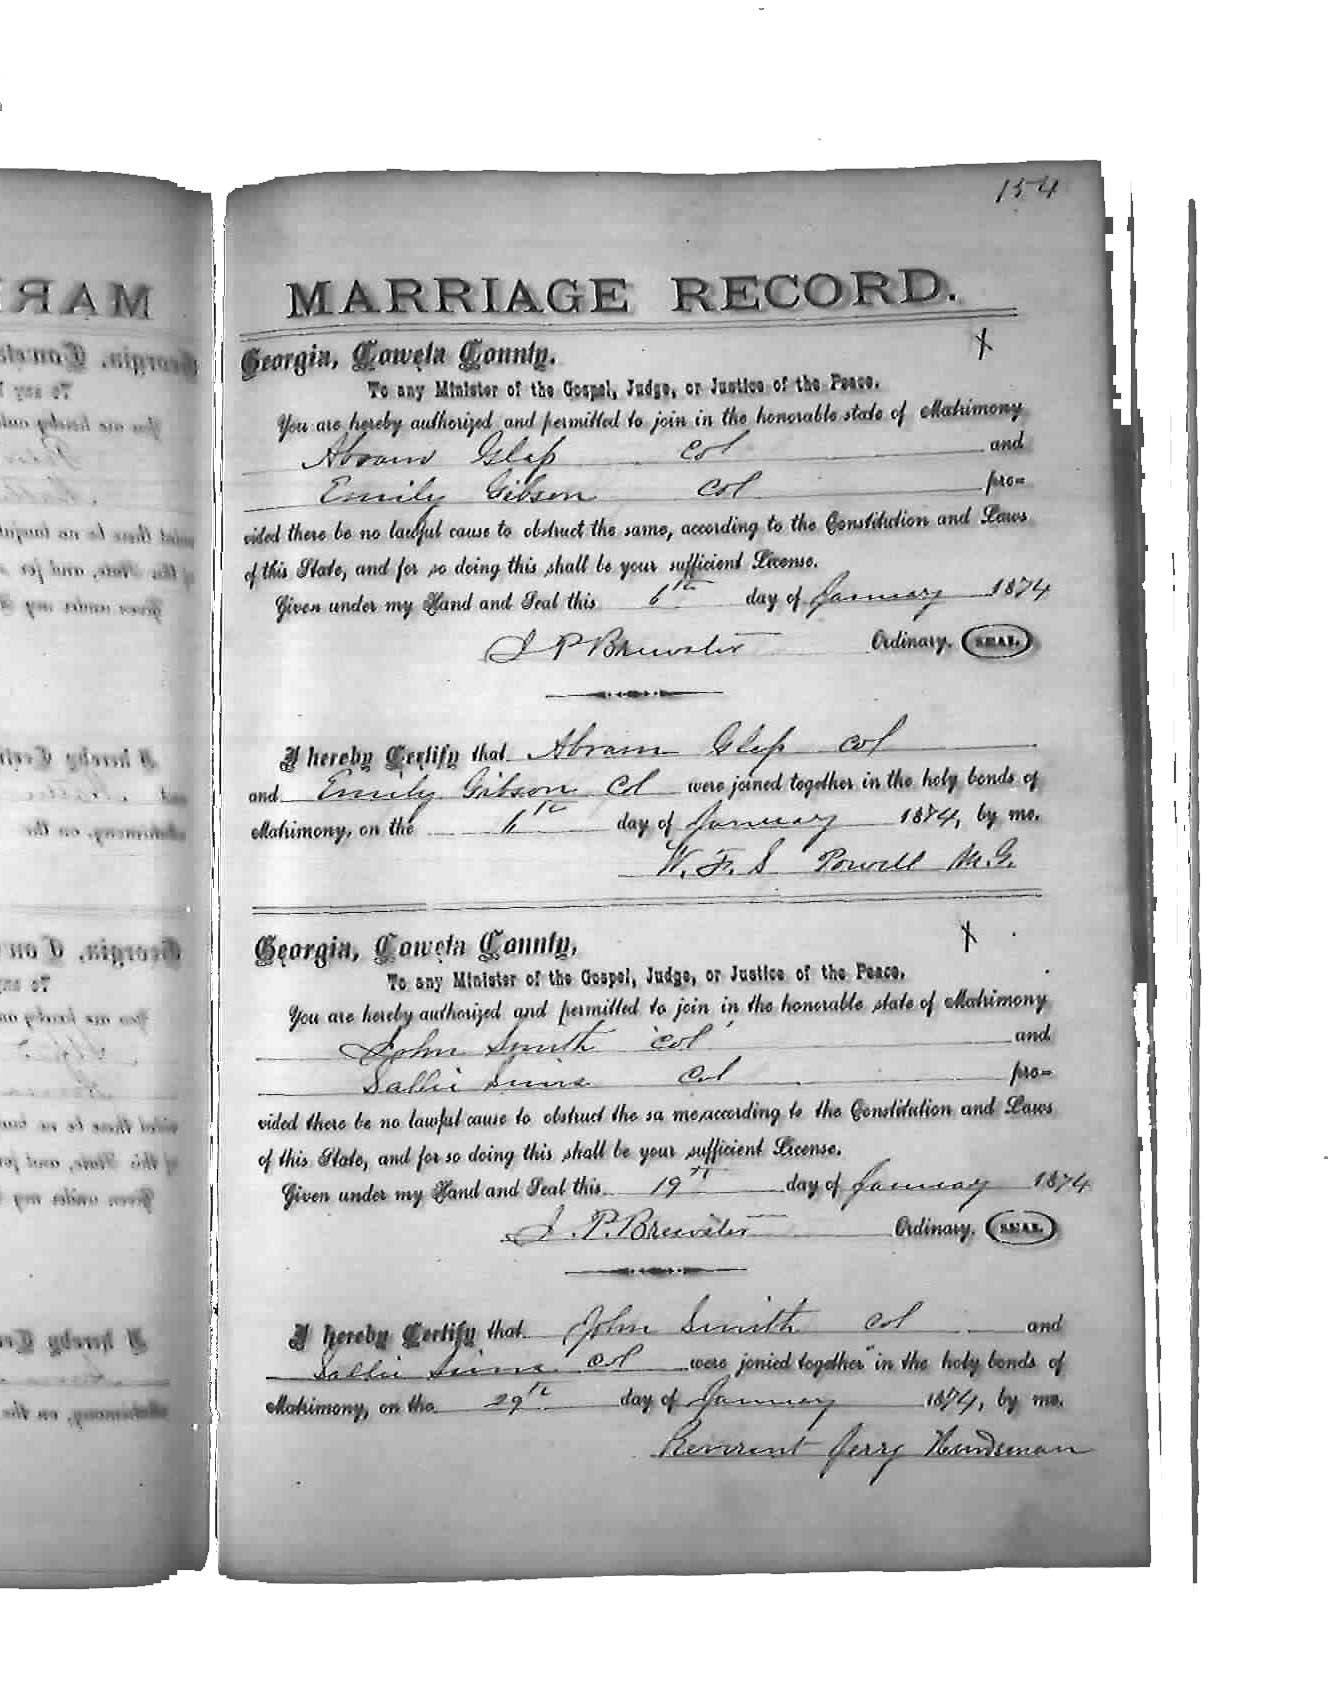 154
MARRIAGE RECORD.
Georgia, Coweta County.
X
To any Minister of the Gospel, Judge, or Justice of the Peace.
You are hereby authorized and permitted to join in the honorable state of Matrimony
Abram Glass Col and
Emily Gibson Col pro=
vided there be no lawful cause to obstruct the same, according to the Constitution and Laws
of this State, and for so doing this shall be your sufficient License.
Given under my Hand and Seal this 6th day of January 1874
J P Brewster Ordinary. SEAL.
I hereby Certify that Abram Glass Col
and Emily Gibson Col were joined together in the holy bonds of
Matrimony, on the 6th day of January 1874, by me.
W. F. S Powell M.G.
Georgia, Coweta County,
X
To any Minister of the Gospel, Judge, or Justice of the Peace.
You are hereby authorized and permitted to join in the honorable state of Matrimony
John Smith 'Col' and
Sallie Sims Col pro=
vided there be no lawful cause to obstruct the sa me,according to the Constitution and Laws
of this State, and for so doing this shall be your sufficient License.
Given under my Hand and Seal this 19th day of January 1874
J. P. Brewster Ordinary. SEAL.
I hereby Certify that John Smith Col and
Sallie Sims Col were jonied together in the holy bonds of
Matrimony, on the 29th day of January 1874, by me.
Reverent Jerry